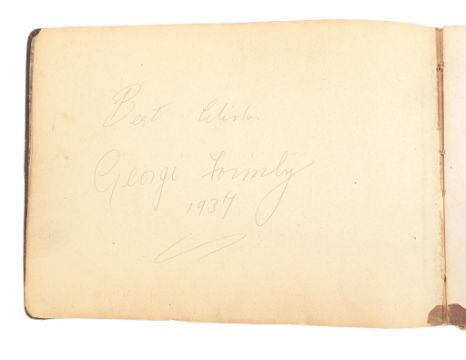 Best Wishes
George Formby
1937